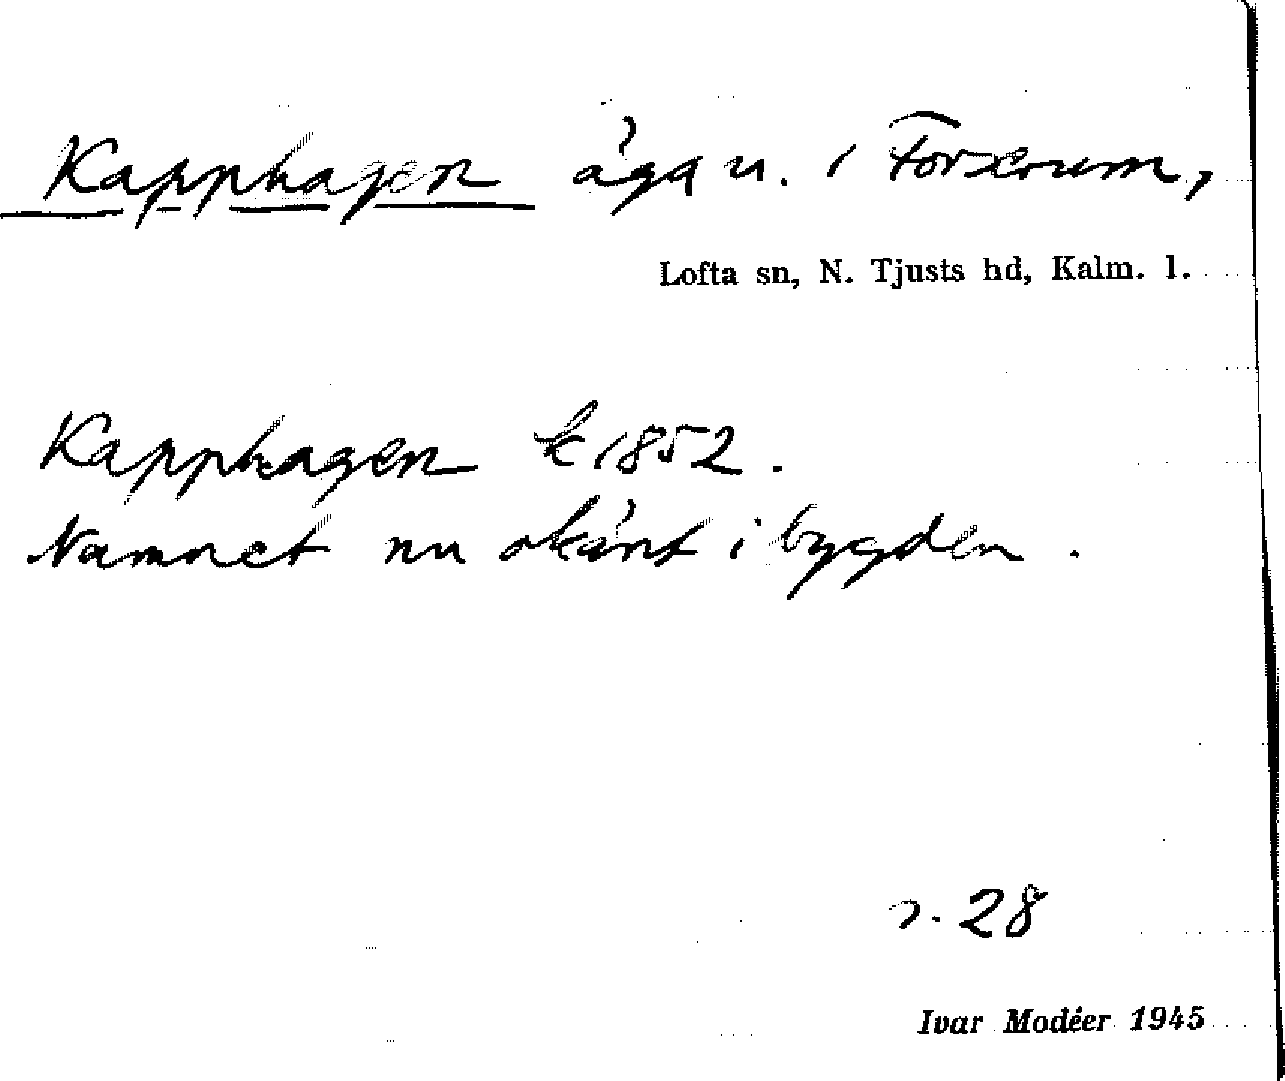 Kapphagen ägan. i Forserum,
Lofta sn, N. Tjusts hd, Kalm. l.
Kapphagen k 1852.
Namnet nu okänt i bygden.
r. 28
Ivar Modéer 1945